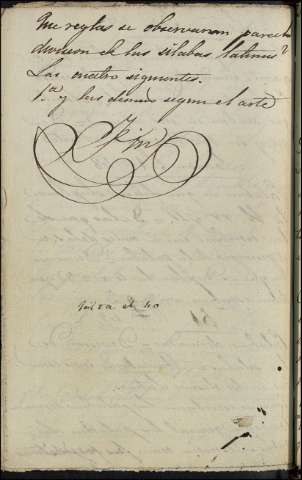 Que reglas se observaran para la
division de las silabas latinas?
Las cuatro siguientes.
1.a y las demas segun el arte
Fin
el 40